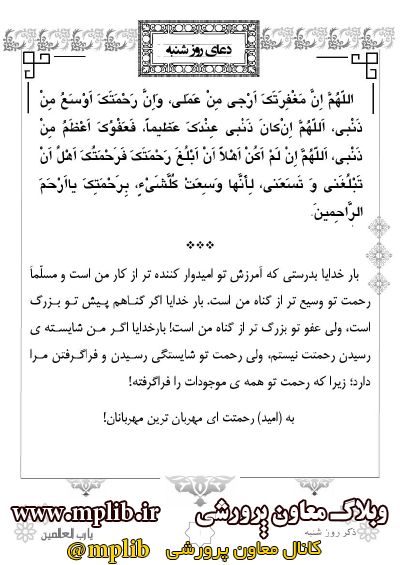 دعای روز شنبه
اَللّهُمَّ اِنَّ مَغْفِرَتَکَ اَرْجی مِنْ عَمَلی، وَاِنَّ رَحْمَتَکَ اَوْسَعُ مِنْ
ذَنْبی، اَللّهُمَّ اِنْ کانَ ذَنْبی عِنْدَکَ عَظیماً، فَعَفْوُکَ اَعْظَمُ مِنْ
ذَنْبی، اَللّهُمَّ اِنْ لَمْ اَکُنْ اَهْلاً اَنْ اَبْلُغَ رَحْمَتَکَ فَرَحْمَتُکَ اَهْلُ اَنْ
تَبْلُغَنی وَ تَسَعَنی، لِأَنَّها وَسِعَتْ کُلَّشَیْءٍ، بِرَحْمَتِکَ یااَرْحَمَ
الرَّاحِمینَ.
بار خدایا بدرستی که آمرزش تو امیدوار کننده تر از کار من است و مسلّماً
رحمت تو وسیع تر از گناه من است. بار خدایا اگر گناهم پیش تو بزرگ
است، ولی عفو تو بزرگ تر از گناه من است! بارخدایا اگر من شایسته ی
رسیدن رحمتت نیستم، ولی رحمت تو شایستگی رسیدن و فراگرفتن مرا
دارد؛ زیرا که رحمت تو همه ی موجودات را فراگرفته!
به (امید) رحمتت ای مهربان ترین مهربانان!
وبلاگ معاون پرورشی www.mplib.ir
ذکر روز شنبه
یارب العالمین
کانال معاون پرورشی @mplib